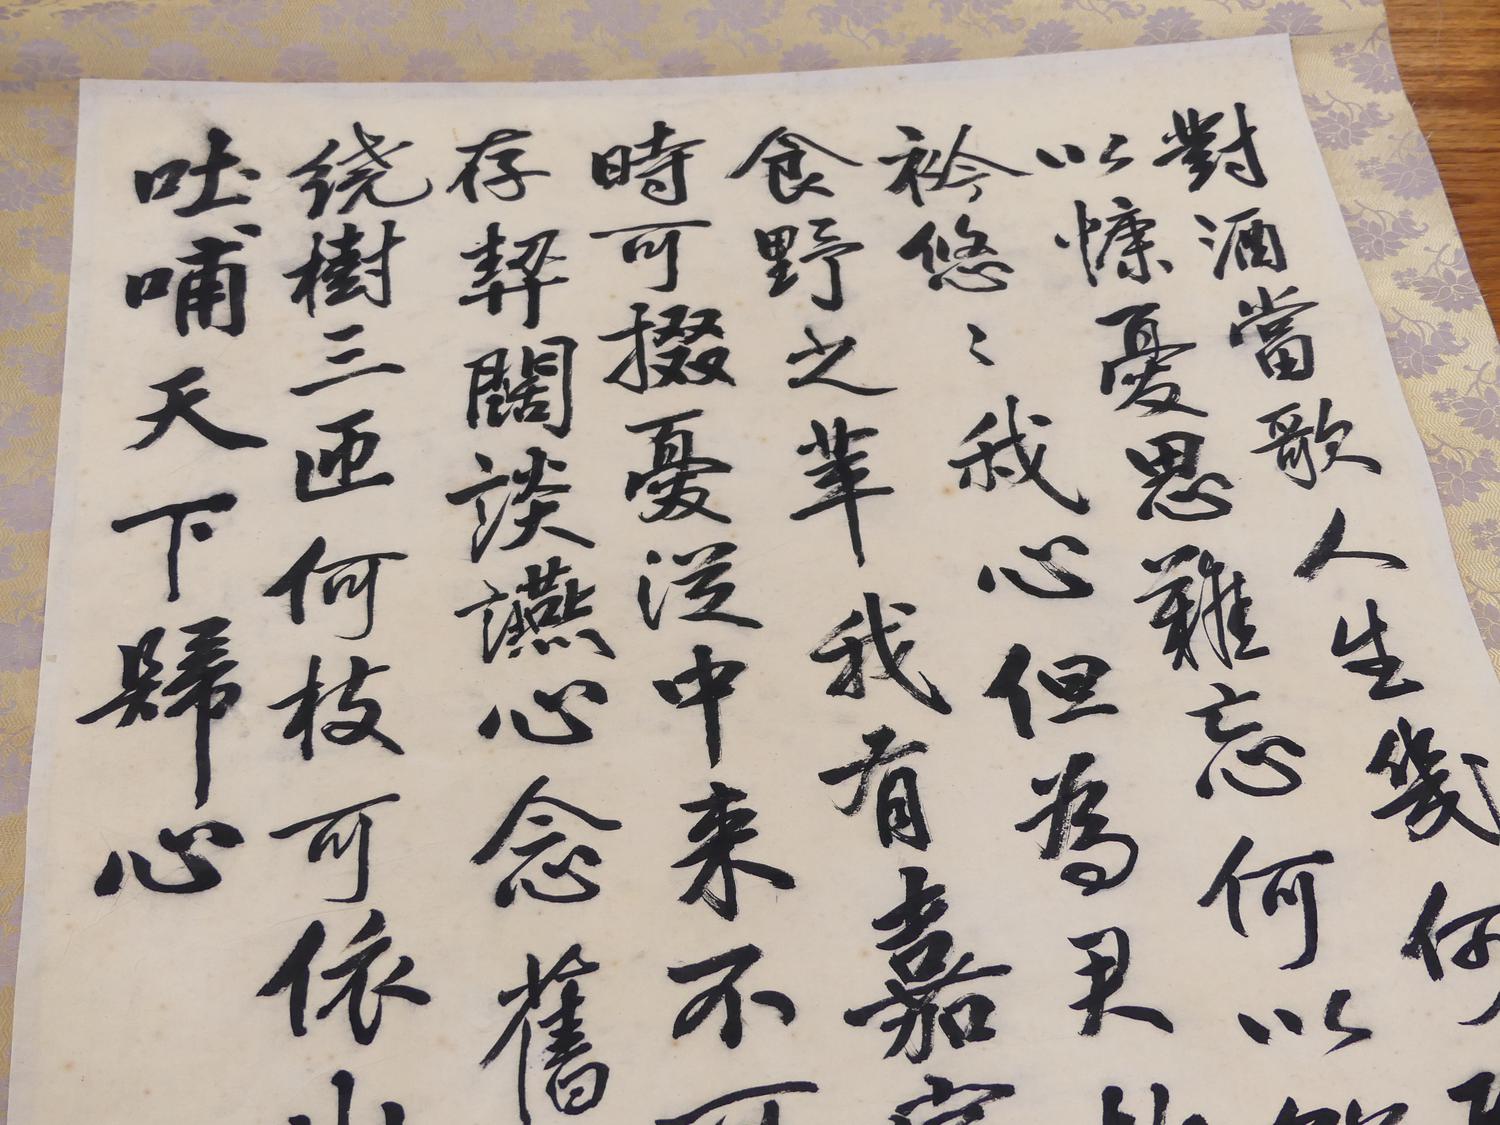 對酒當歌人生幾何
以慷憂思難忘何以解
衿悠〻我心但為君故
食野之苹我有嘉賓
時可掇憂從中来不可
存契闊談讌心念舊
绕樹三匝何枝可依山
吐哺天下歸心